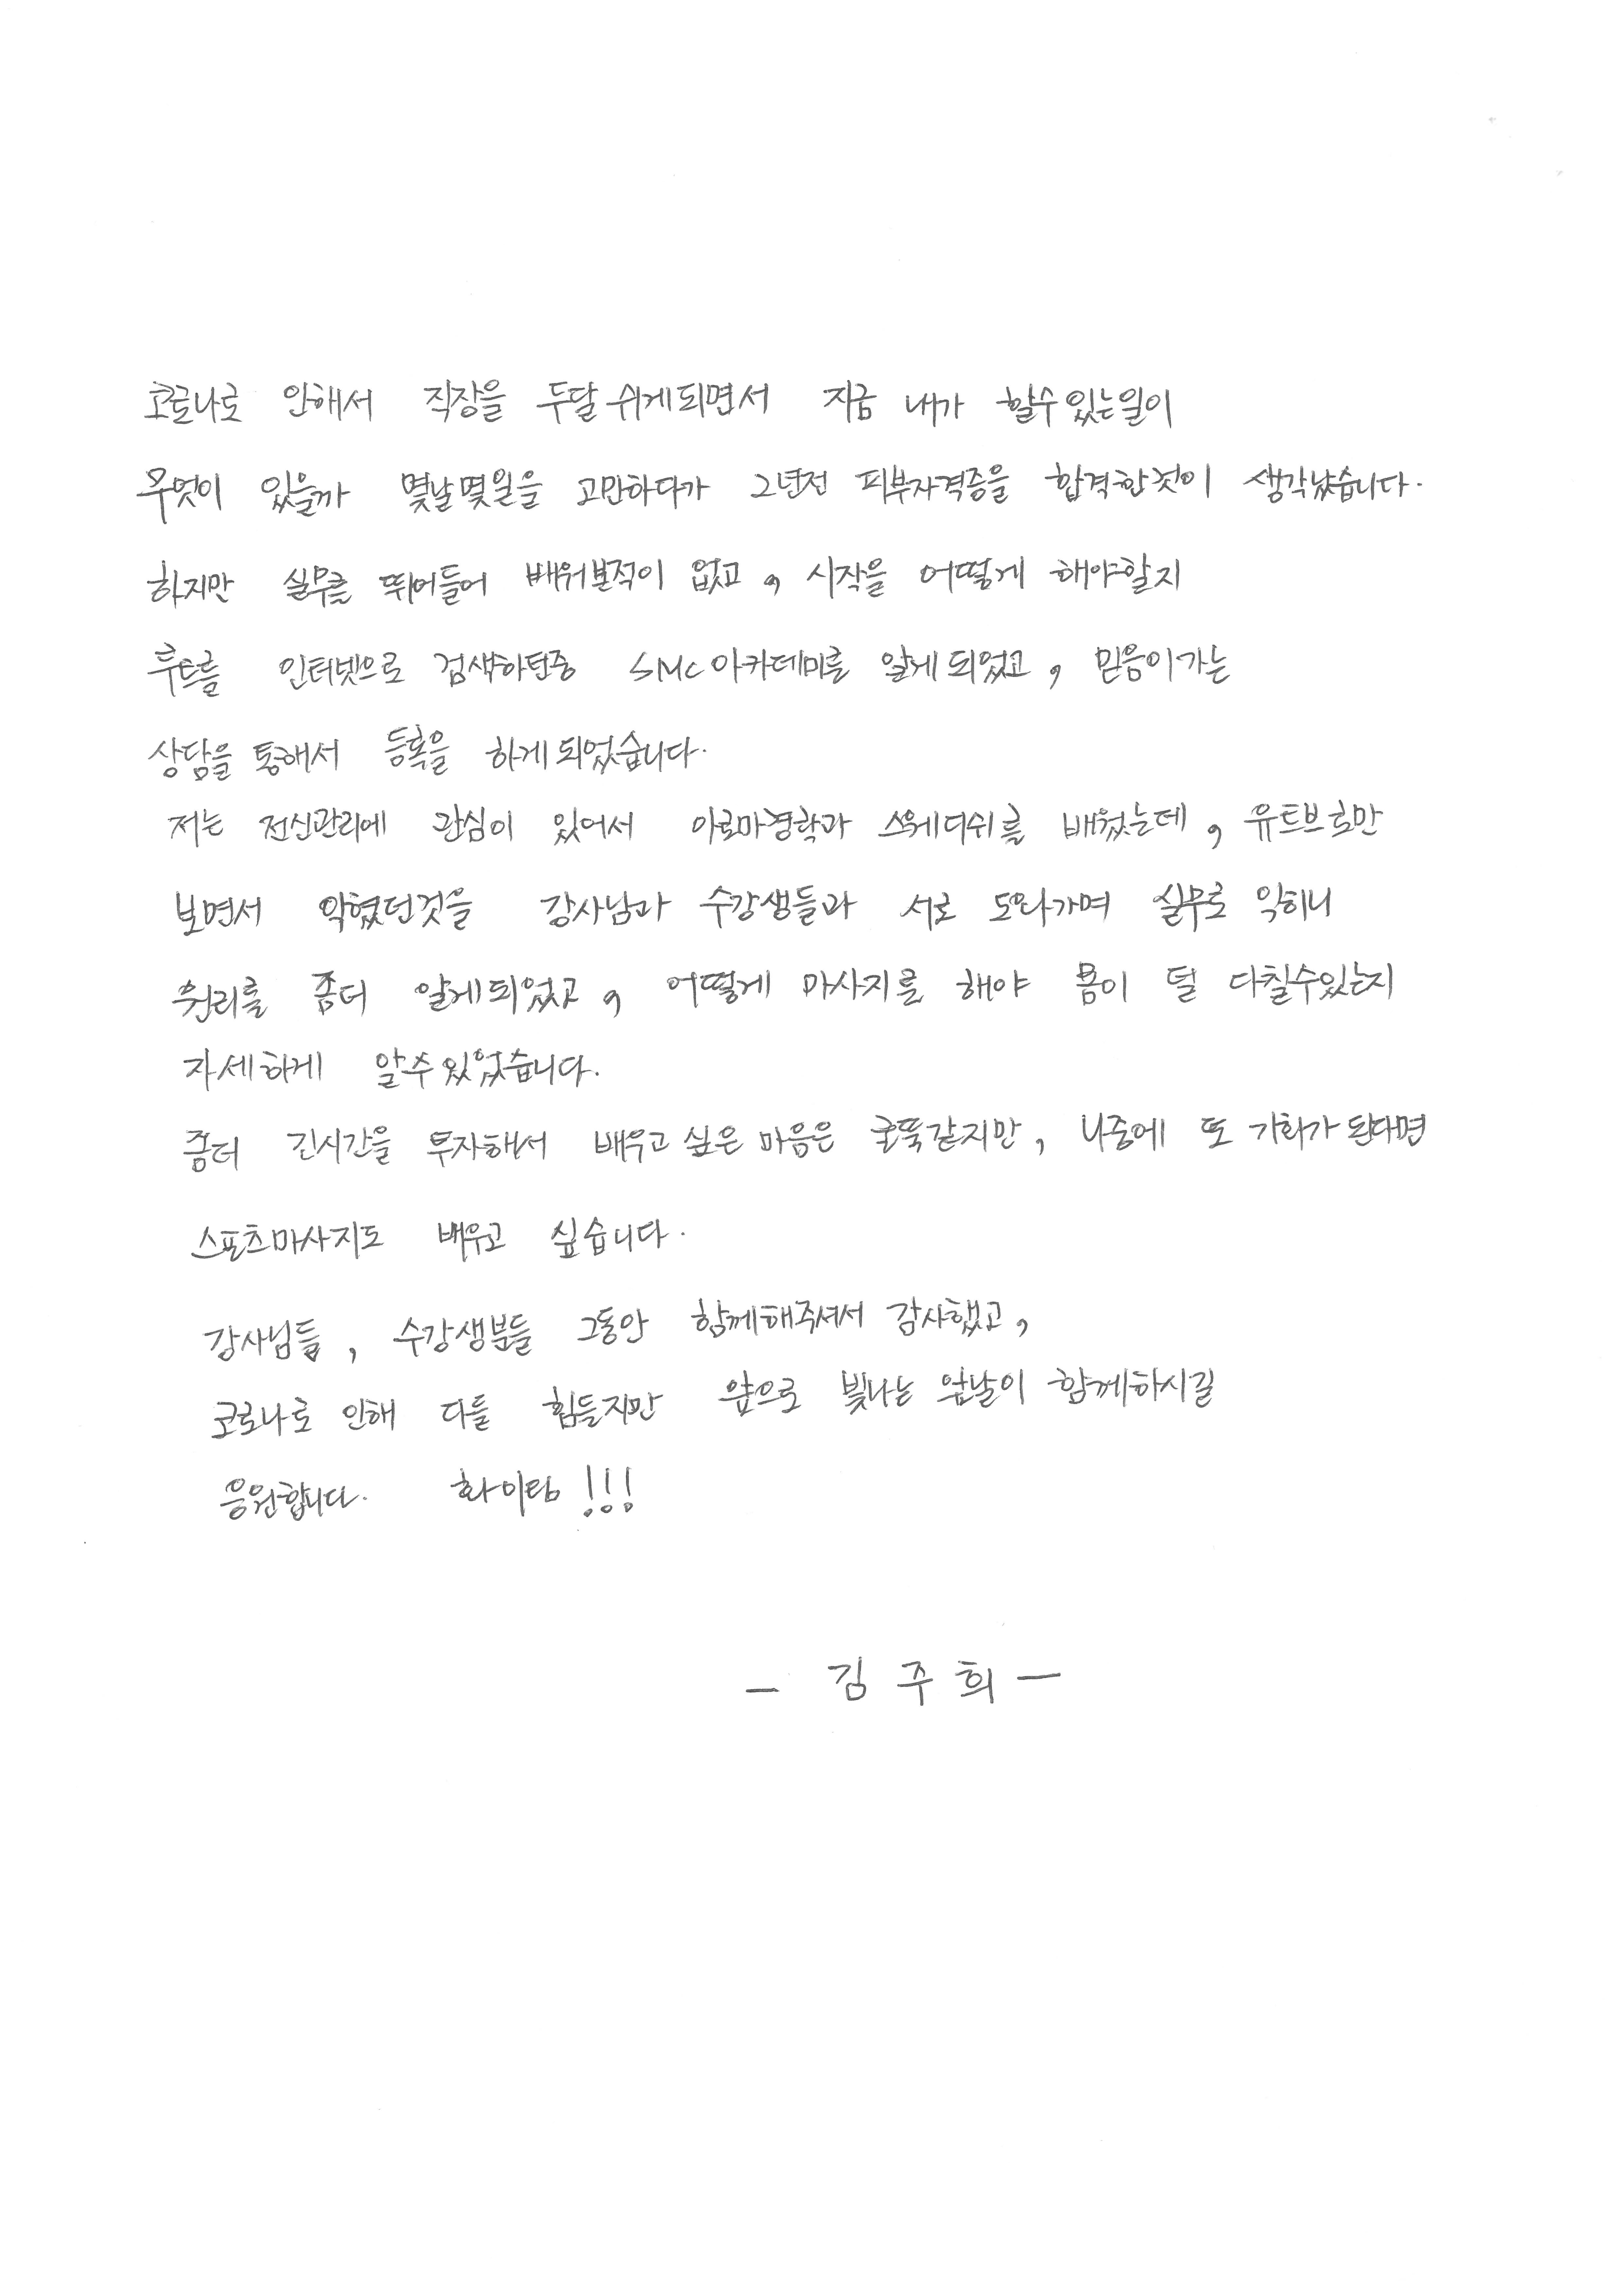 코로나로 인해서 직장을 두달 쉬게되면서 지금 내가 할수있는일이
무엇이 있을까 몇날몇일을 고민하다가 2년전 피부자격증을 합격한것이 생각났습니다.
하지만 실무를 뛰어들어 배워본적이 없고, 시작을 어떻게 해야할지
루트를 인터넷으로 검색하던중 SMC아카데미를 알게되었고, 믿음이가는
상담을 통해서 등록을 하게되었습니다.
저는 전신관리에 관심이 있어서 아로마경락과 스웨디쉬를 배웠는데, 유튜브로만
보면서 익혔던것을 강사님과 수강생들과 서로 도와가며 실무로 익히니
원리를 좀더 알게되었고, 어떻게 마사지를 해야 몸이 덜 다칠수있는지
자세하게 알수있었습니다.
좀더 긴시간을 투자해서 배우고싶은 마음은 굴뚝같지만, 나중에 또 기회가 된다면
스포츠마사지도 배우고 싶습니다.
강사님들, 수강생분들 그동안 함께해주셔서 감사했고,
코로나로 인해 다들 힘들지만 앞으로 빛나는 앞날이 함께하시길
응원합니다. 화이팅!!!
- 김주희 -